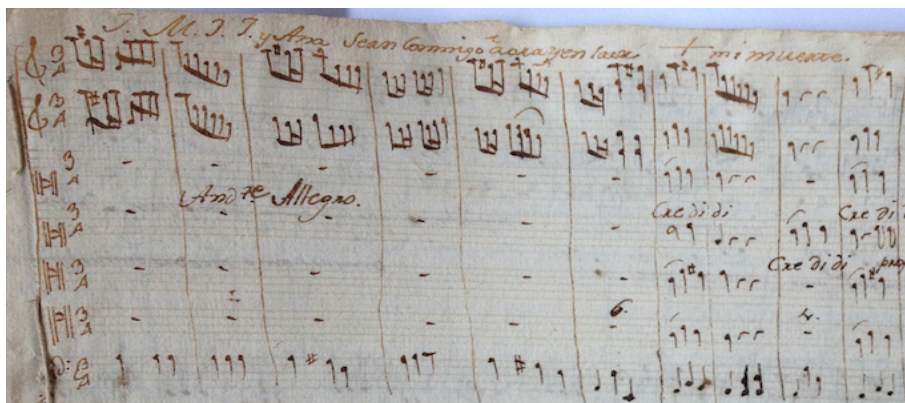 J. M. J. J. y Ana Sean Conmigo aora y en la ora + mi muerte.
And.te Allegro.
Credidi Credidi
Credidi prop